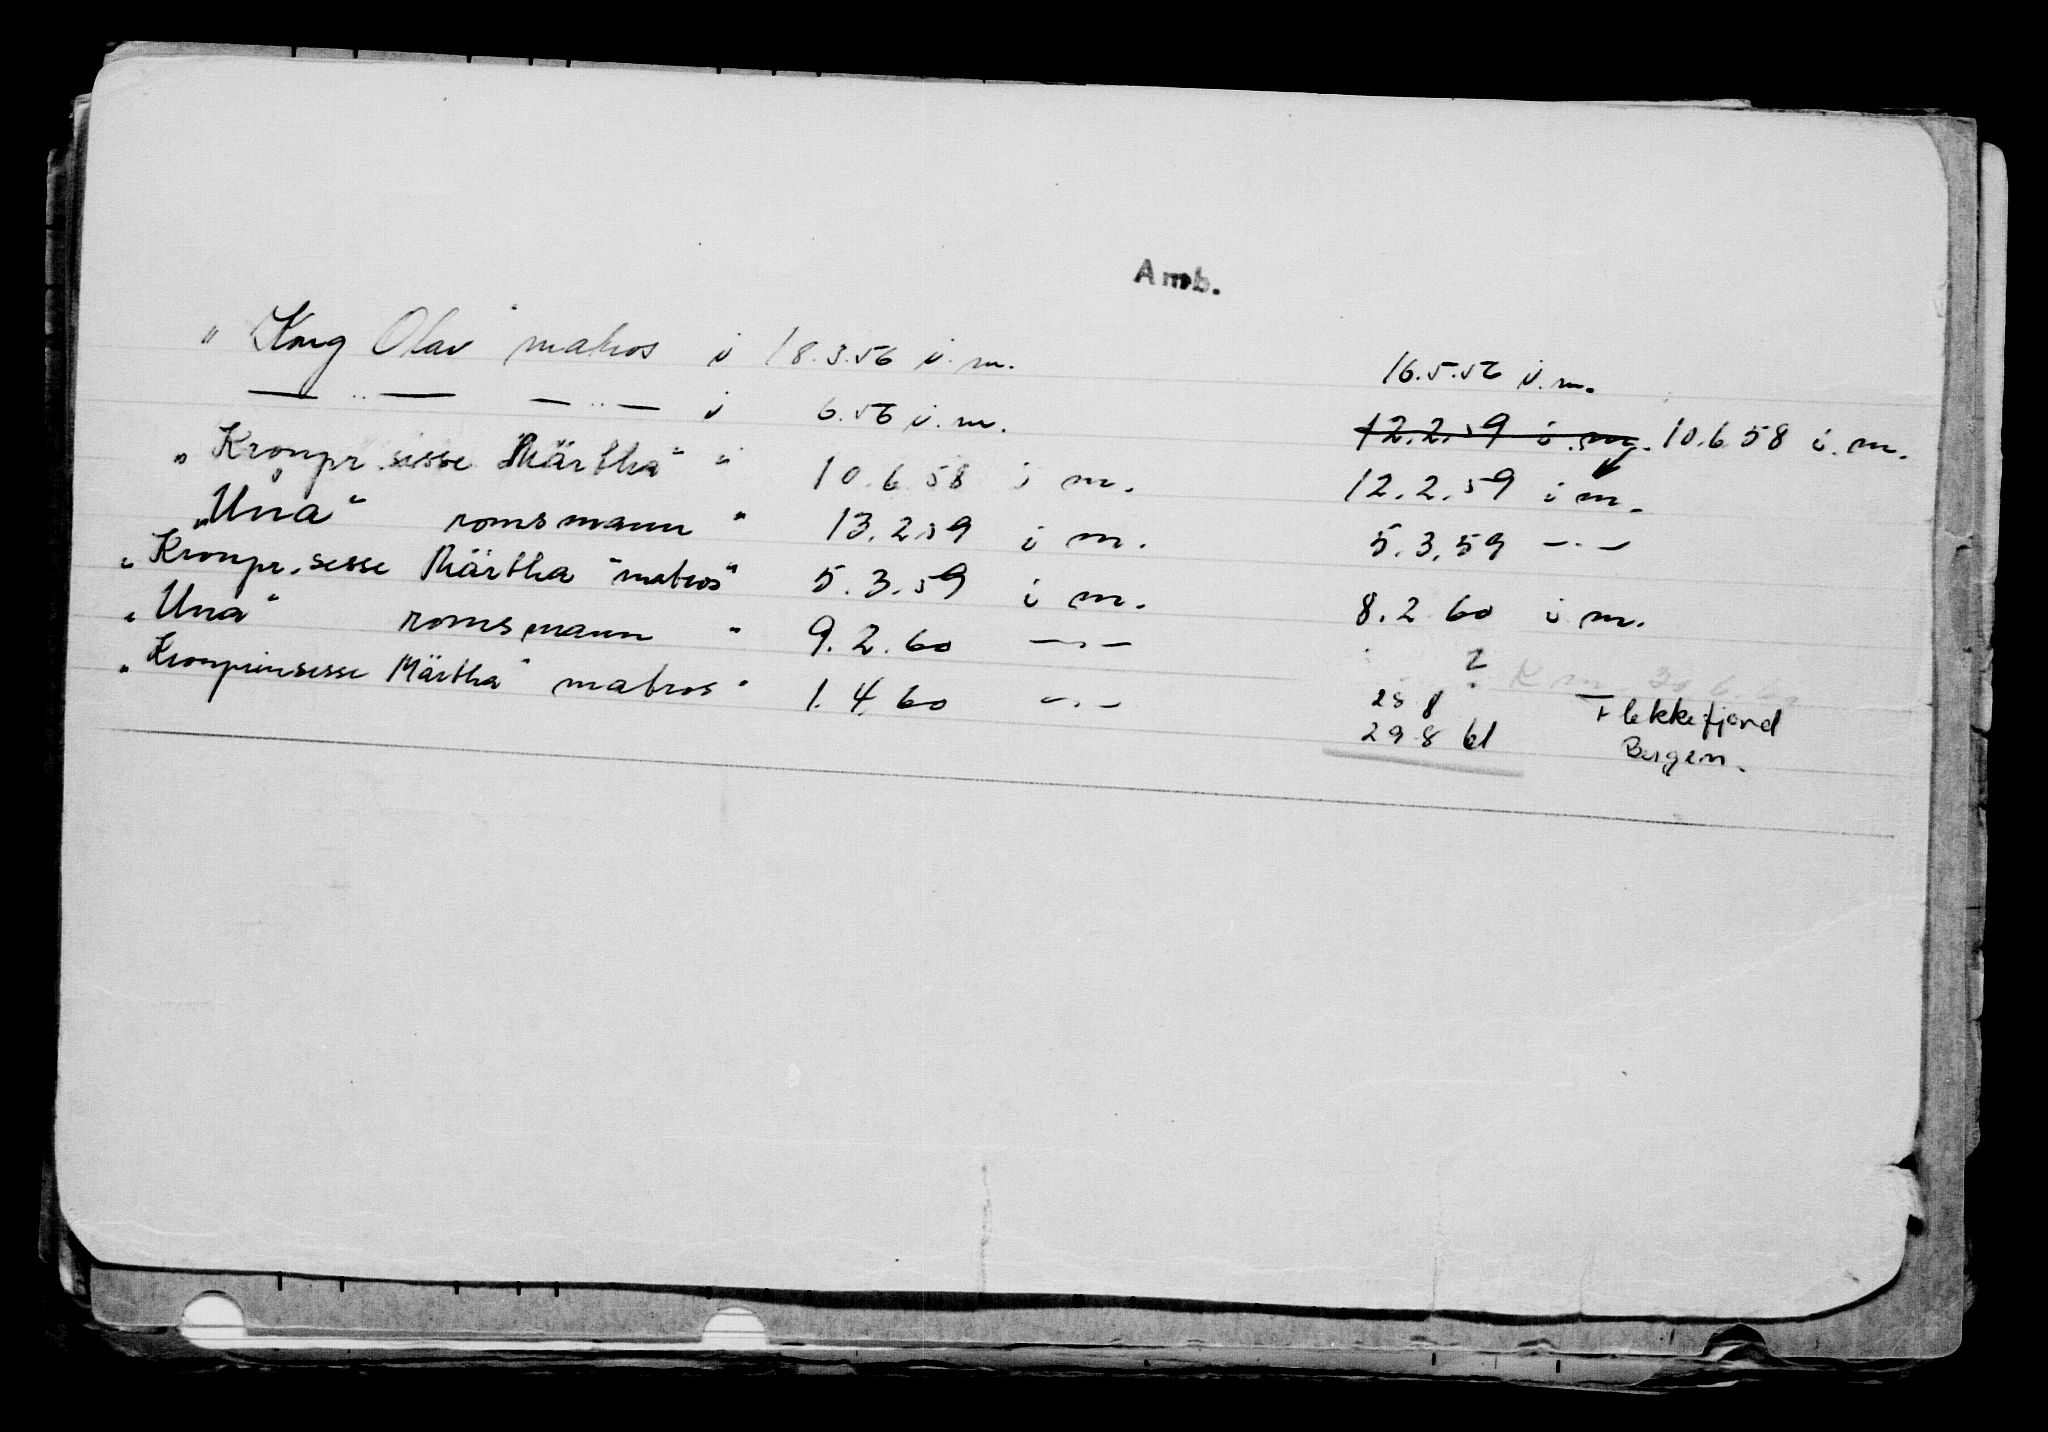 Amb.
" Kong Olav " matros i 18.3.56 i. m. 16.5.56 i. m.
— " — — " — i 6.56 i. m. 12.2.59 i. m. 10.6 58 i. m.
" Kronpr.sesse Märtha " " 10.6 58 i m. 12.2.59 i m.
" Una " romsmann " 13.2.59 i m. 5.3.59 — . —
" Kronpr.sesse Märtha " matros " 5.3.59 i m. 8.2 60 i m.
" Una " romsmann " 9.2.60 — . — ?
" Kronprinsesse Märtha " matros " 1.4.60 — . — 25 8 Flekkefjord
29.8 61 Bergen.